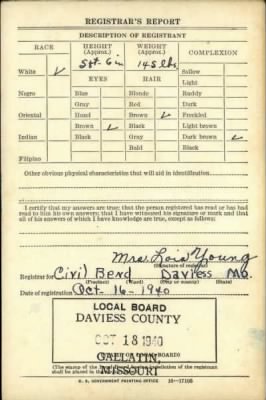 REGISTRAR'S REPORT
DESCRIPTION OF REGISTRANT
RACE
HEIGHT (Approx.)
WEIGHT (Approx.)
COMPLEXION
White ✓
5 ft. 6 in
145 lbs.
Sallow
EYES
HAIR
Light
Negro
Blue
Blonde
Ruddy
Gray
Red
Dark
Oriental
Hazel
Brown ✓
Freckled
Brown ✓
Black
Light brown
Indian
Black
Gray
Dark brown ✓
Bald
Black
Filipino
Other obvious physical characteristics that will aid in identification
I certify that my answers are true; that the person registered has read or has had
read to him his own answers; that I have witnessed his signature or mark and that
all of his answers of which I have knowledge are true, except as follows:
Mrs. Lois Young
(Signature of registrar)
Registrar for Civil Bend Daviess Mo.
(Precinct) (Ward)
Date of registration Oct-16-1940
LOCAL BOARD
DAVIESS COUNTY
OCT 18 1940
GALLATIN,
MISSOURI
(STAMP OF LOCAL BOARD)
(The stamp of the Local Board having jurisdiction of the registrant
shall be placed in the
U. S. GOVERNMENT PRINTING OFFICE 16—17105